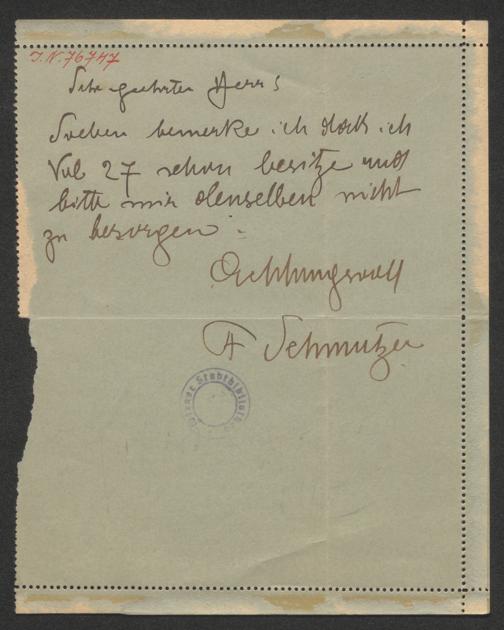 J.N. 76747
Sehr geehrter Herr!
Soeben bemerke ich daß ich
Vol 27 schon besitze und
bitte mir denselben nicht
zu besorgen.
Achtungsvoll
A Schmutzer
Wiener Stadtbibliothek